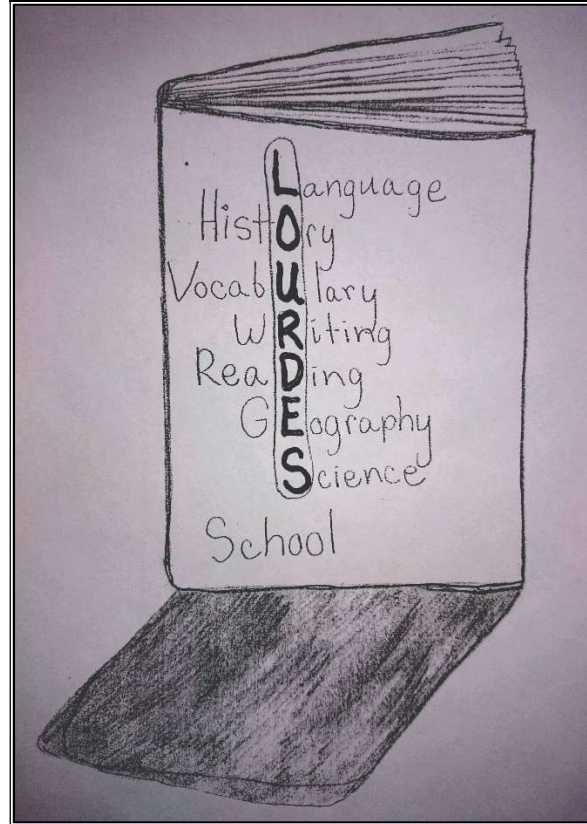 Language
HistOry
VocabUlary
WRiting
ReaDing
GEography
Science
School